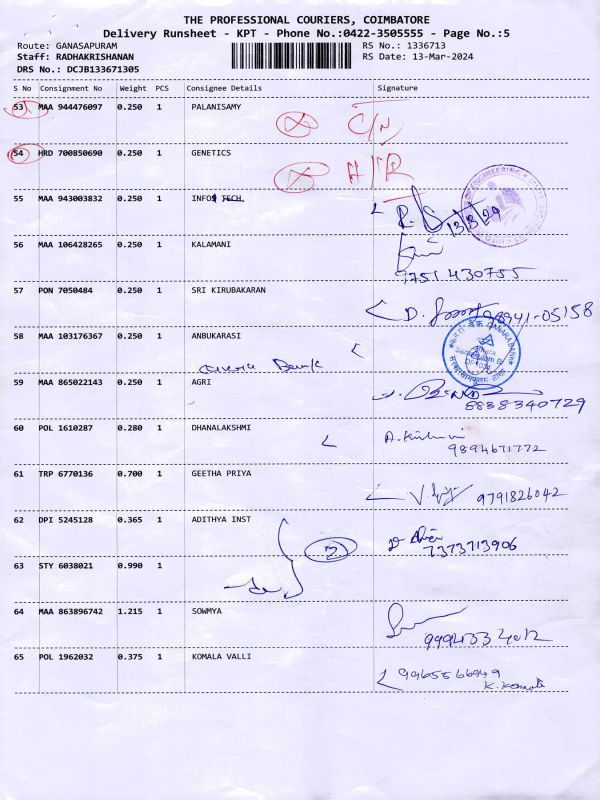 THE PROFESSIONAL COURIERS, COIMBATORE
Delivery Runsheet - KPT - Phone No.:0422-3505555 - Page No.:5
Route: GANASAPURAM RS No.: 1336713
Staff: RADHAKRISHANAN RS Date: 13-Mar-2024
DRS No.: DCJB133671305
S No Consignment No Weight PCS Consignee Details Signature
53 MAA 944476097 0.250 1 PALANISAMY C/N
54 HRD 700850690 0.250 1 GENETICS H/R
55 MAA 943003832 0.250 1 INFO TECH 13/3/24
56 MAA 106428265 0.250 1 KALAMANI
9751430755
57 PON 7050484 0.250 1 SRI KIRUBAKARAN
D. 98941-05158
58 MAA 103176367 0.250 1 ANBUKARASI
CANARA BANK
Bank
59 MAA 865022143 0.250 1 AGRI
8838340729
60 POL 1610287 0.280 1 DHANALAKSHMI
9894671772
61 TRP 6770136 0.700 1 GEETHA PRIYA
9791826042
62 DPI 5245128 0.365 1 ADITHYA INST
2 7373713906
63 STY 6038021 0.990 1
64 MAA 863896742 1.215 1 SOWMYA
65 POL 1962032 0.375 1 KOMALA VALLI
K. Komali